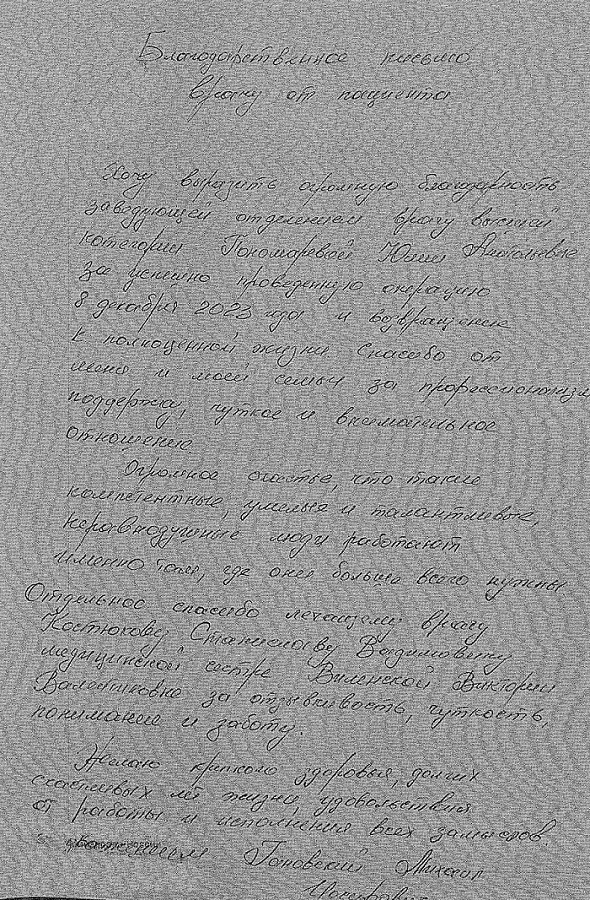 Благодарственное письмо
врачу от пациента
Хочу выразить огромную благодарность
заведующей отделением врачу высшей
категории Пономаревой Юлии Анатольевне
за успешно проведенную операцию
8 декабря 2023 года и возвращение
к полноценной жизни. Спасибо от
меня и моей семьи за профессионализм
поддержку, чуткое и внимательное
отношение
Огромное счастье, что такие
компетентные, умелые и талантливые,
неравнодушные люди работают
именно там, где они больше всего нужны.
Отдельное спасибо лечащему врачу
Костюкову Станиславу Вадимовичу
медицинской сестре Виленской Виктории
Валентиновне за отзывчивость, чуткость,
понимание и заботу.
Желаю крепкого здоровья, долгих
счастливых лет жизни, удовольствия
от работы и исполнения всех замыслов.
с уважением Гановский Михаил